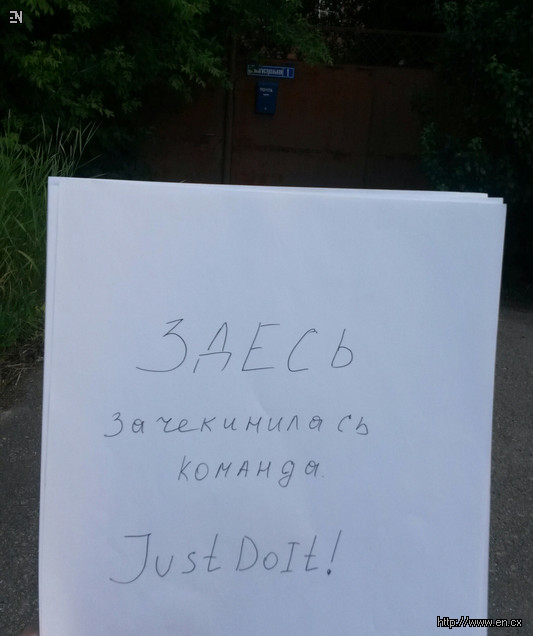 EN
1
ЗДЕСЬ
зачекинилась
команда.
Just DoIt!
http://www.en.cx